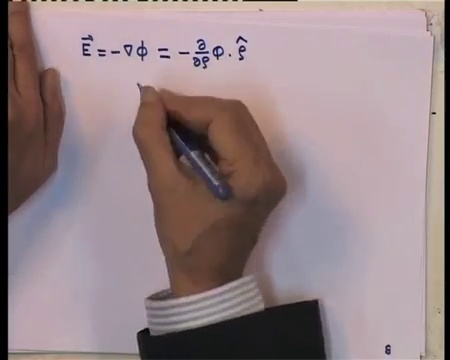 E⃗ = -∇Φ = - ∂/∂ρ Φ · ρ̂
8